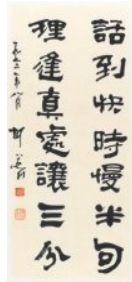 話到快時慢半句
理逢真處讓三分